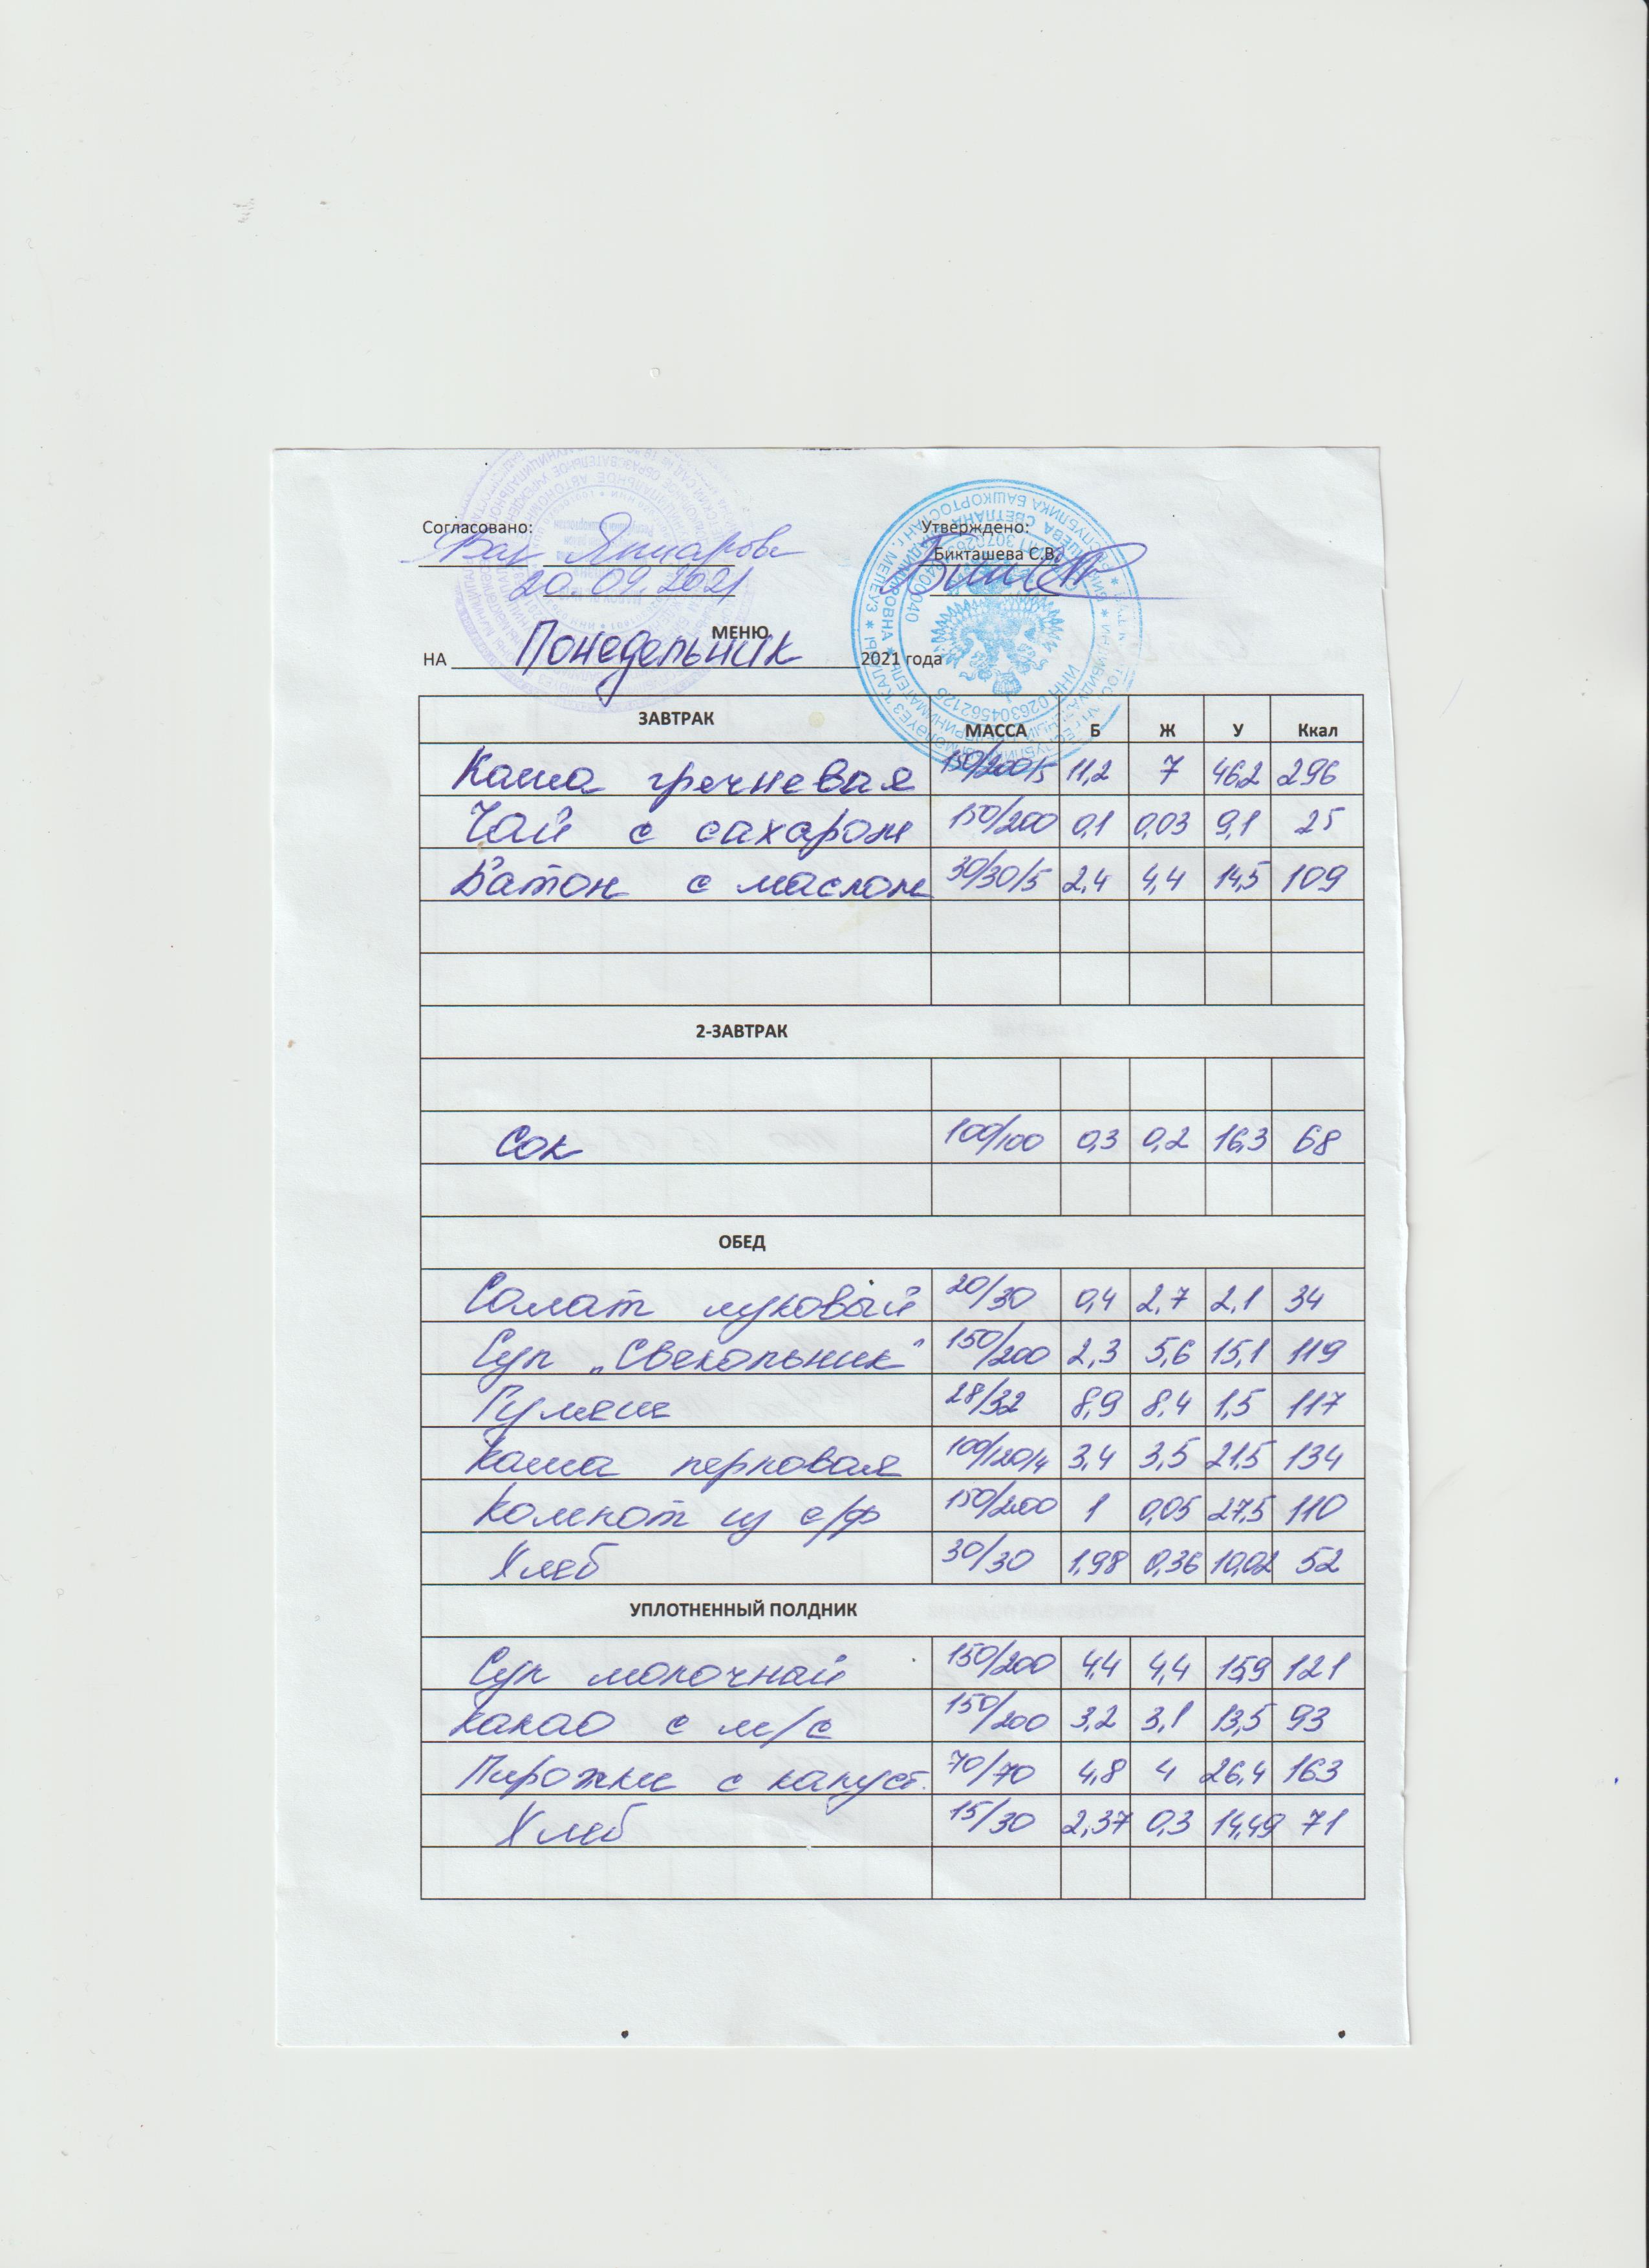 Согласовано: Утверждено:
Бикташева С.В.
20.09.2021
МЕНЮ
НА Понедельник 2021 года
ЗАВТРАК МАССА Б Ж У Ккал
Каша гречневая 150/200/5 11,2 7 46,2 296
Чай с сахаром 150/200 0,1 0,03 9,1 25
Батон с маслом 30/30/5 2,4 4,4 14,5 109
2-ЗАВТРАК
Сок 100/100 0,3 0,2 16,3 68
ОБЕД
Салат луковый 20/30 0,4 2,7 2,1 34
Суп „Свекольник" 150/200 2,3 5,6 15,1 119
Гуляш 28/32 8,9 8,4 1,5 117
Каша перловая 100/120/4 3,4 3,5 21,5 134
Компот из с/ф 150/200 1 0,05 27,5 110
Хлеб 30/30 1,98 0,36 10,02 52
УПЛОТНЕННЫЙ ПОЛДНИК
Суп молочный 150/200 4,4 4,4 15,9 121
Какао с м/с 150/200 3,2 3,1 13,5 93
Пирожки с капуст. 70/70 4,8 4 26,4 163
Хлеб 15/30 2,37 0,3 14,49 71